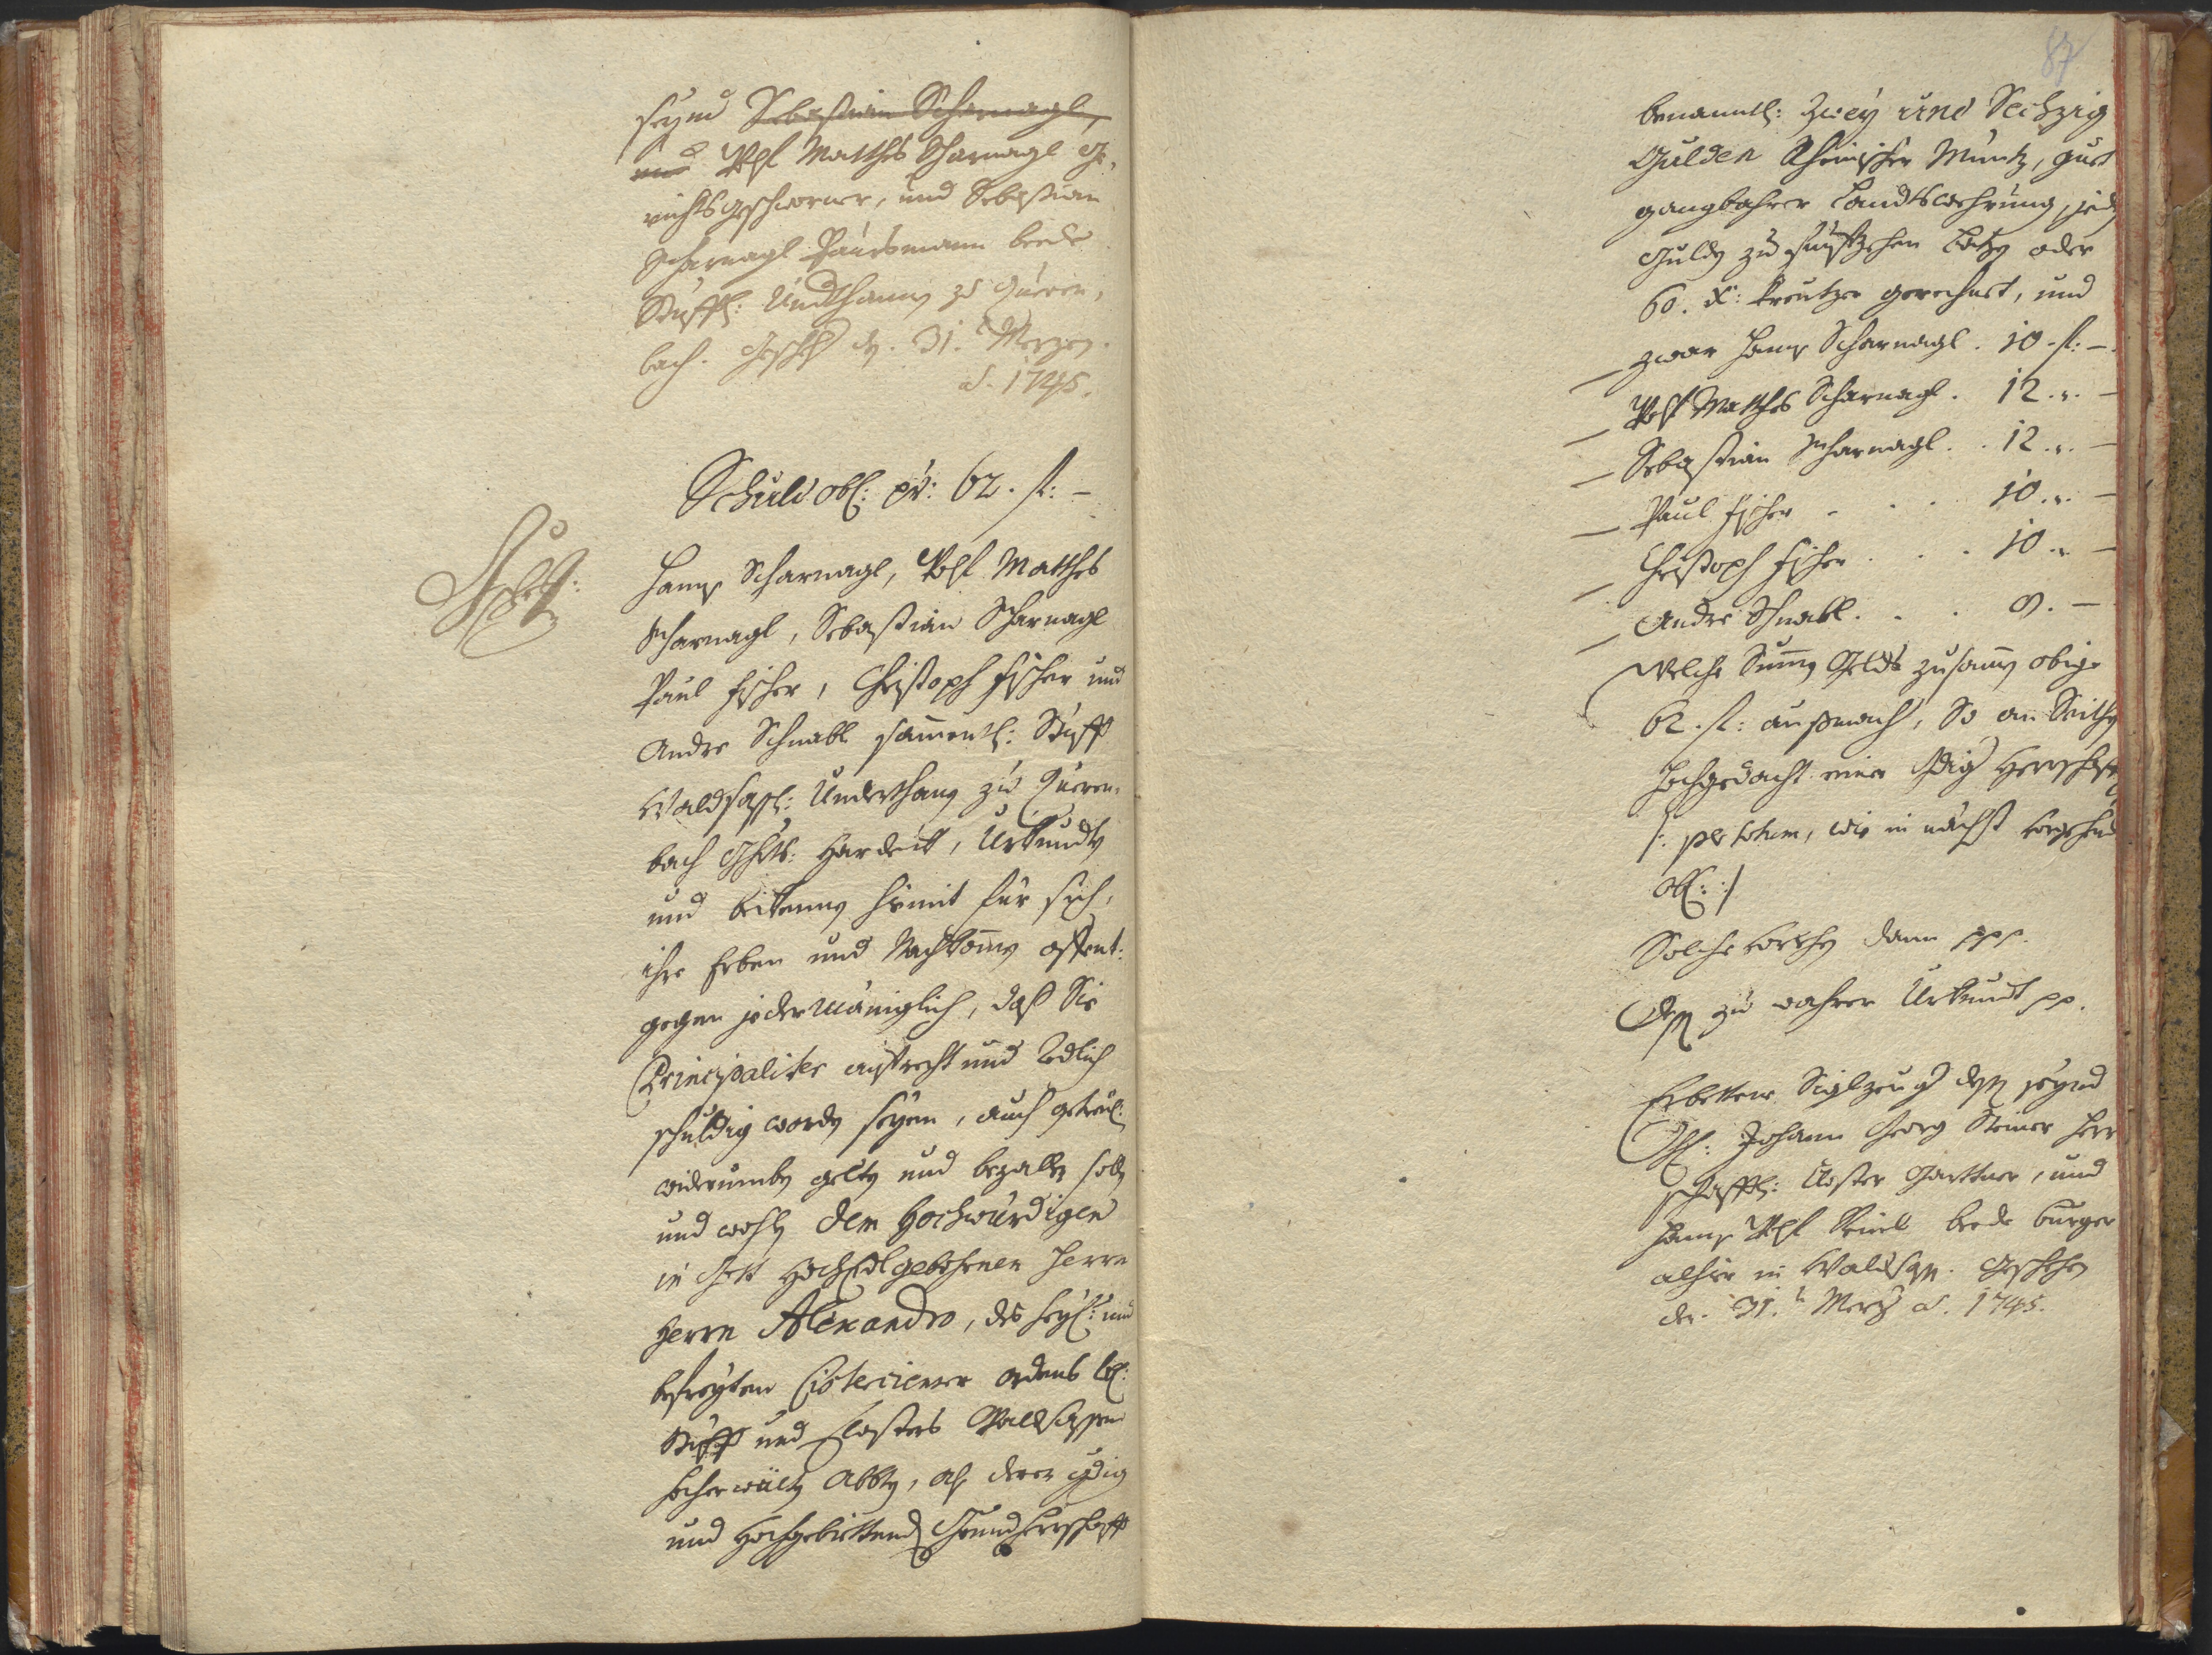 seynd Sebastian Scharnagl,
und Wolf Matthes Scharnagl Ge-
richtsgeschworner, und Sebastian
Scharnagl Paursmann beede
Stüfftl: Undthanen zu Queren-
bach. Gescheh den 31. Merzen
ao. 1745.
Schuld obl: pr: 62. fl: –
Hanns Scharnagl, Wolf Matthes
Scharnagl, Sebastian Scharnagl
Paul Fischer, Christoph Fischer und
Andre Schnabl sammentl: Stüfft
Waldsaßl: Underthanen zu Queren-
bach Ghts: Hardeck, Urkunden
und bekennen hiemit für sich,
ihre Erben und Nachkommen offent:
gegen jedermäniglich, daß Sie
Principaliter aufrecht und Redlich
schuldig worden seyen, auch getreul:
widerumben gelten und bezallen sollen
und wollen dem Hochwürdigen
in Gott HochEdlgebohrnen Herrn
Herrn Alexandro, des heyl: und
befreyten Cistercienser ordens lobl:
Stüfft und Closters Waldsassen
hocherwölten Abbten, als derer gdig
und Hochgebiettenden Grundherrschafft
87
benanntl: Zwey und Sechzig
Gulden Rheinischer Müntz, guet
gangbahrer Landtswehrung, jeden
Gulden zu fünffzehen Batzen oder
60. x: kreutzer gerechnet, und
zwar Hanns Scharnagl. 10. fl: –
Wolf Matthes Scharnagl. 12. „. –
Sebastian Scharnagl. . 12. „. –
Paul Fischer . . . 10. „. –
Christoph Fischer . . . 10. „. –
Andre Schnabl. . . 8. –
Welche Summen Geldts zusammen obige
62. fl: außmacht, So von Seithen
Hochgedacht einer Gdig Herrschafft
/: per totum, wie in nächst vorgehend
obl: :/
Solche dann ppp.
Dessen zu wahrer Urkundt pp.
Erbettene Siglzeugen dessen seynd
Johann Georg Steiner Herr-
schafftl: Closter Garttner, und
Hanns Wolf beede burger
alhier in Waldsassen. Geschehen
den 31. Merz ao. 1745.